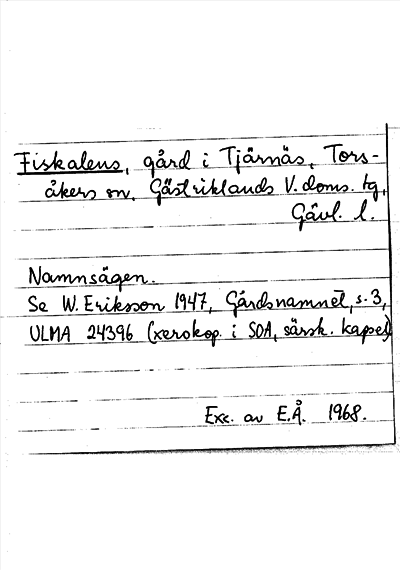 Fiskalens, gård i Tjärnäs, Tors-
åkers sn, Gästriklands V. doms. tg,
Gävl. l.
Namnsägen.
Se W. Eriksson 1947, Gårdsnamnet, s. 3,
ULMA 24396 (xerokop. i SOA, särsk. kapsel)
Exc. av E.Å. 1968.